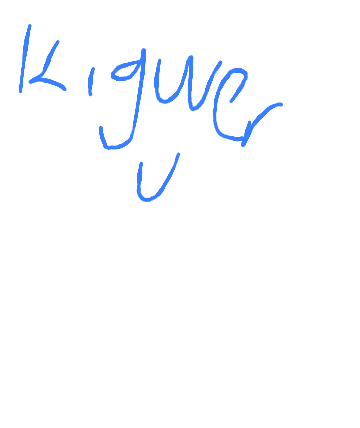 Kiguver
U